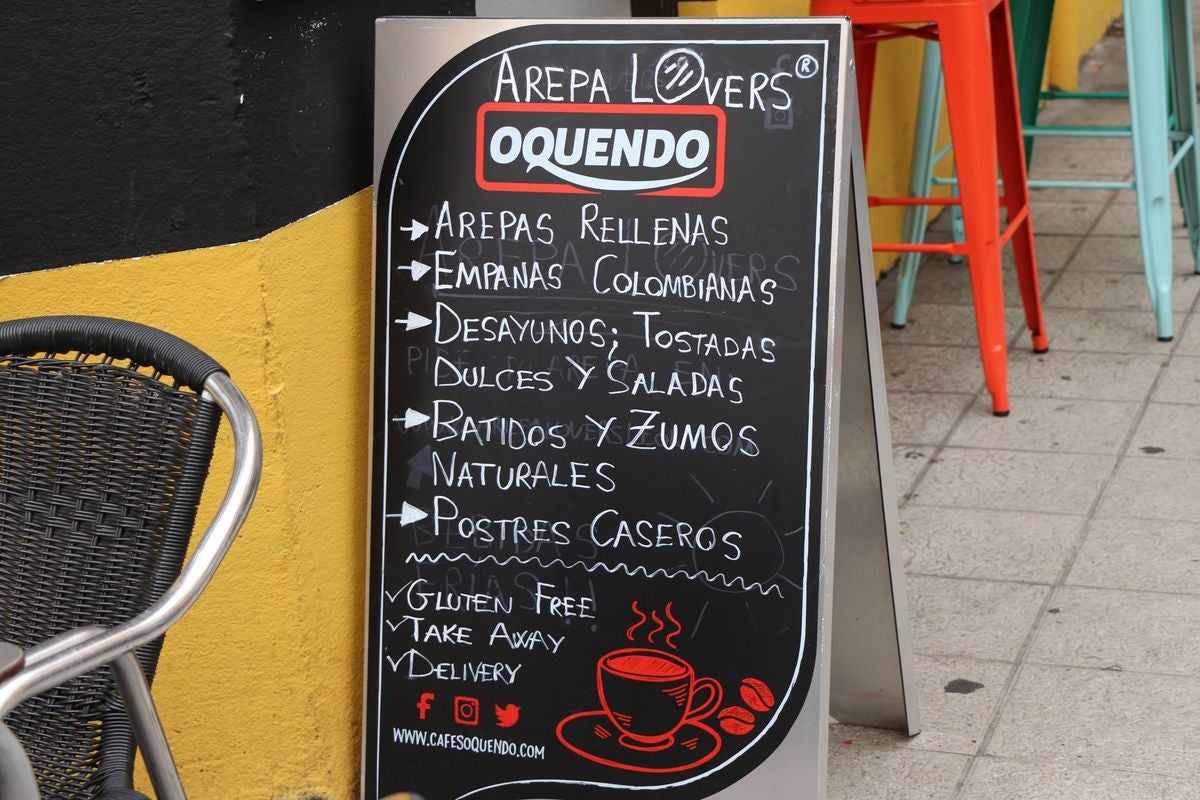 AREPA LOVERS®
OQUENDO
AREPAS RELLENAS
EMPANAS COLOMBIANAS
DESAYUNOS; TOSTADAS
DULCES Y SALADAS
BATIDOS Y ZUMOS
NATURALES
POSTRES CASEROS
GLUTEN FREE
TAKE AWAY
DELIVERY
WWW.CAFESOQUENDO.COM